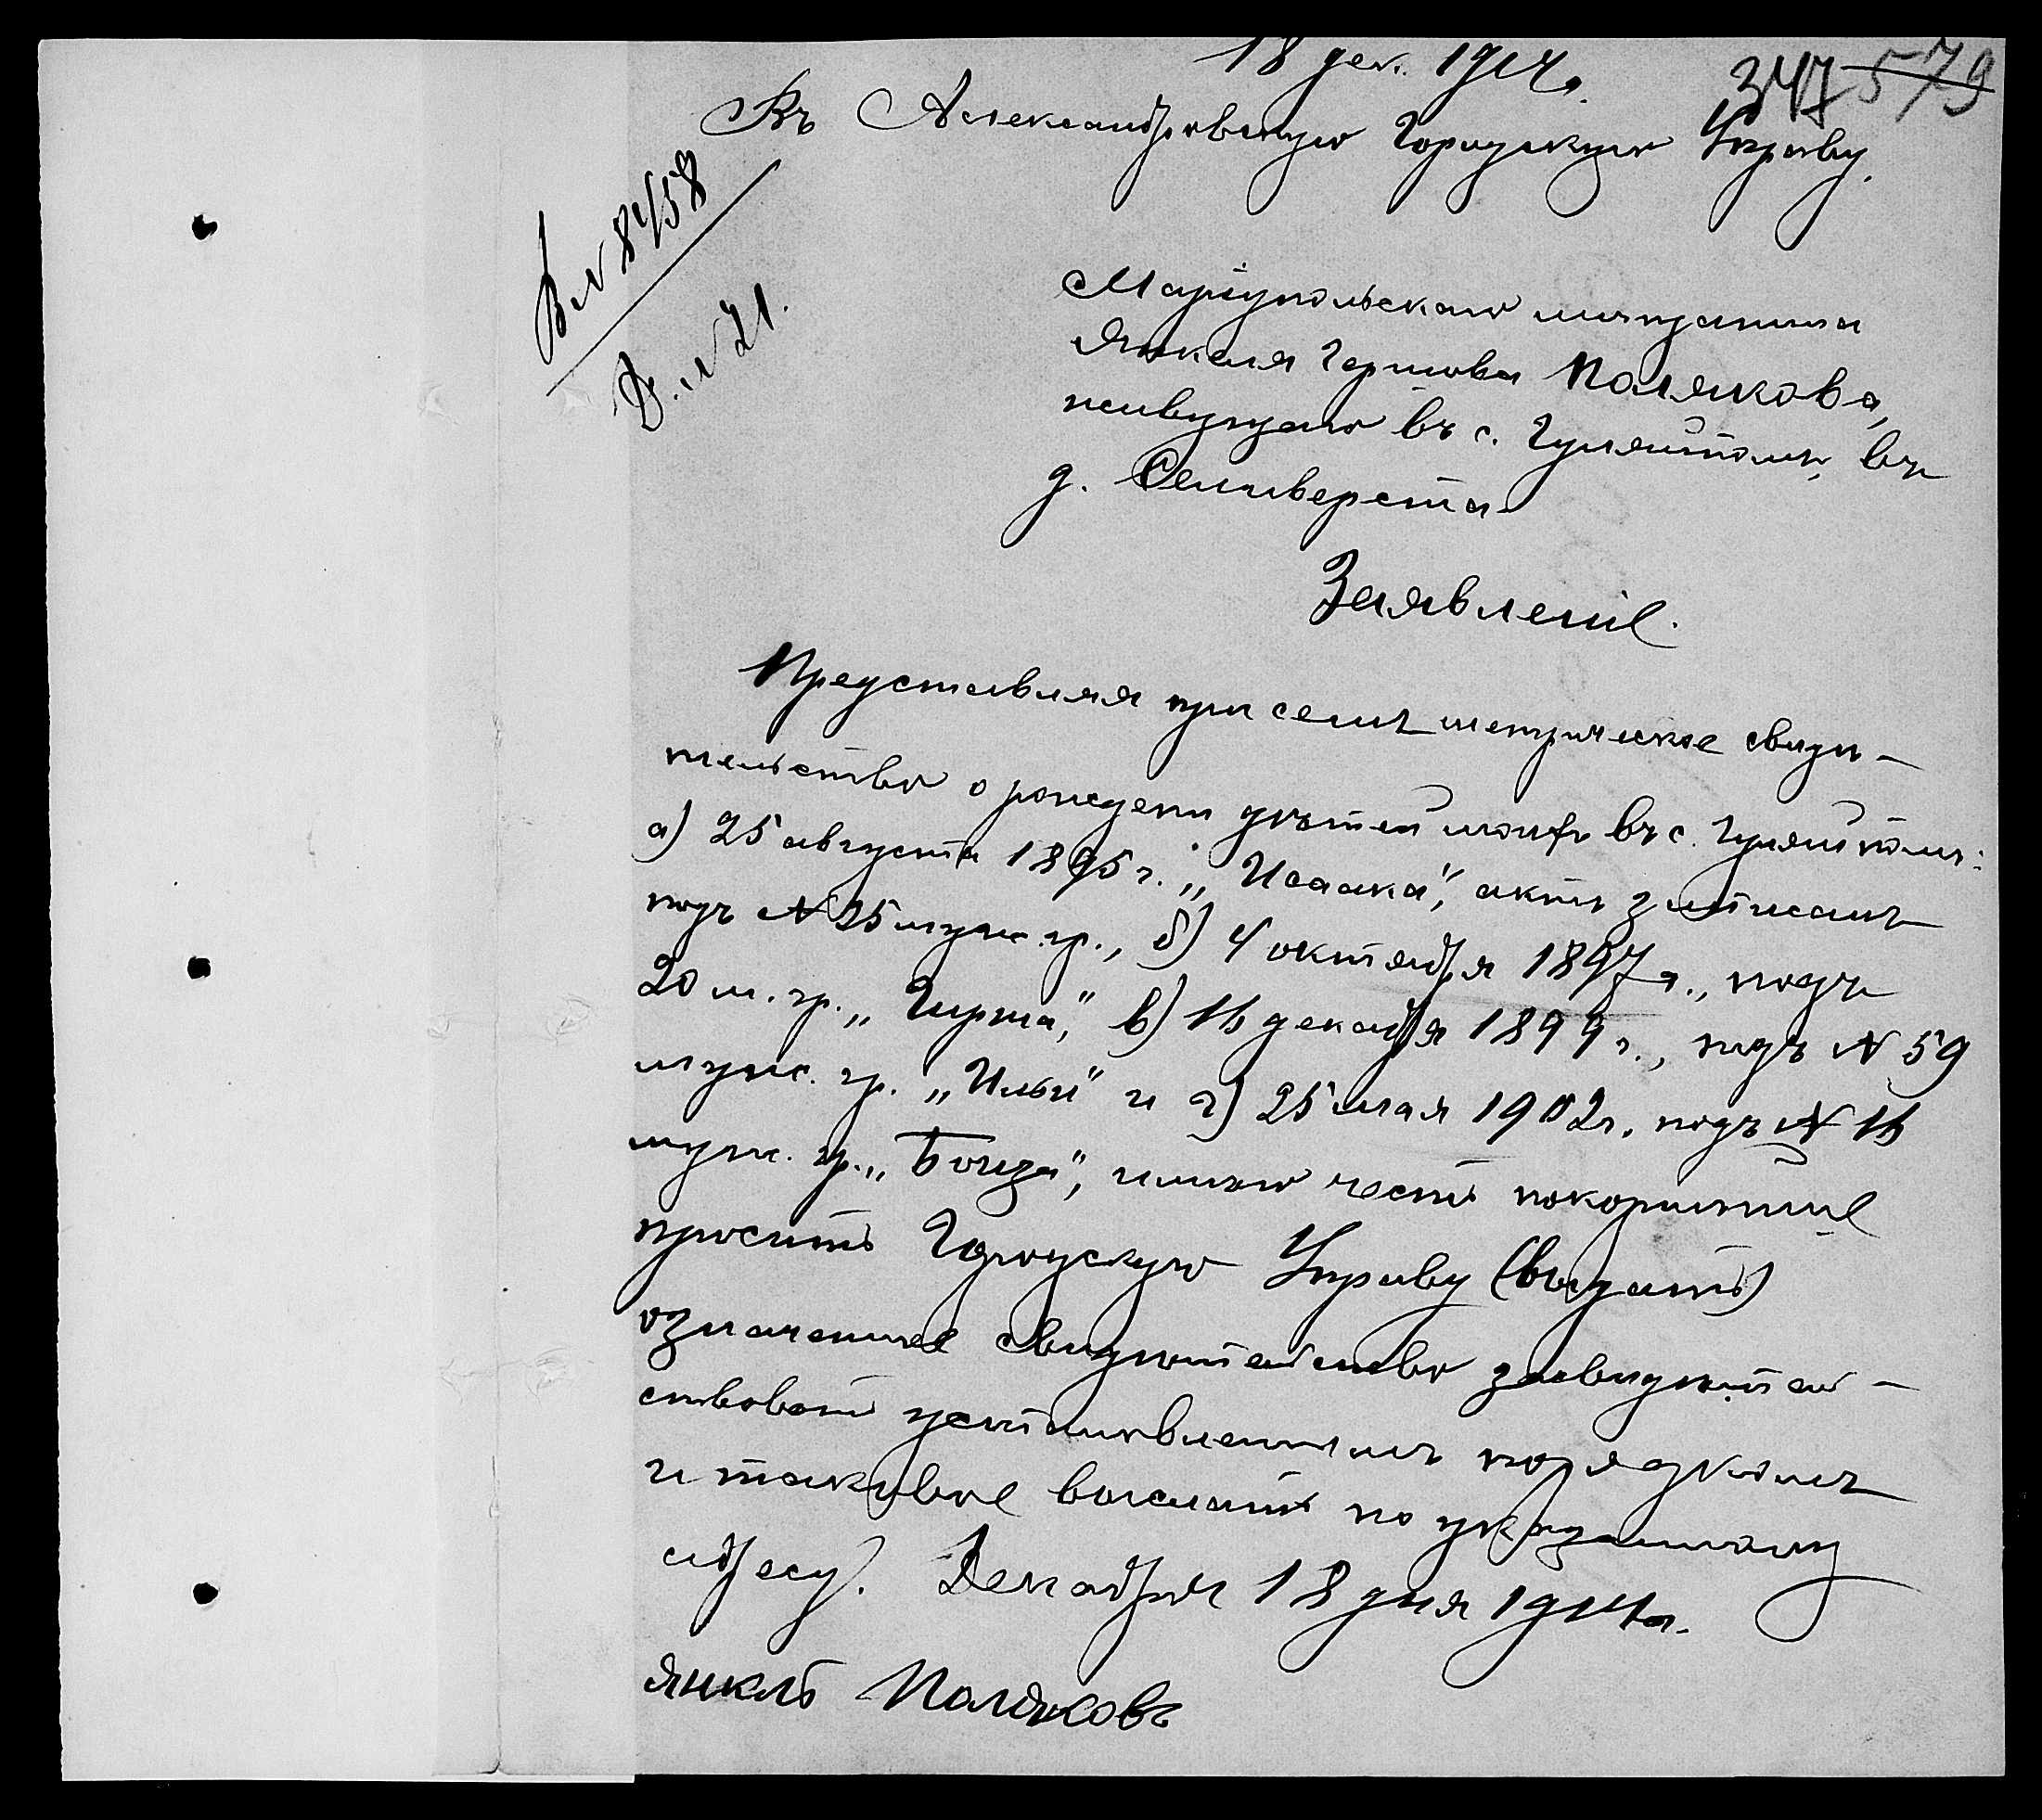 18 дек. 1914 г.
347 579
Въ Александровскую Городскую Управу.
В. № 8458
Д. № 21.
Маріупольскаго мѣщанина
Янкеля Гершова Полякова,
живущаго въ с. Гуляйполѣ, въ
д. Селиверста
Заявленіе.
Представляя при семъ метрическое свидѣ-
тельство о рожденіи дѣтей моихъ въ с. Гуляйполѣ:
а) 25 августа 1895 г. „Исаака", актъ записанъ
подъ № 25 муж. гр., б) 4 октября 1897 г., подъ
20 м. гр. „Гирша", в) 16 декабря 1899 г., подъ № 59
муж. гр. „Ильи" и г) 25 мая 1902 г. подъ № 16
муж. гр. „Боиза", имѣю честь покорнѣйше
просить Городскую Управу (выдать)
означенное свидѣтельство засвидѣтель-
ствовать установленнымъ порядкомъ
и таковое выслать по указанному
адресу. Декабря 18 дня 1914 г.
Янкель Поляковъ